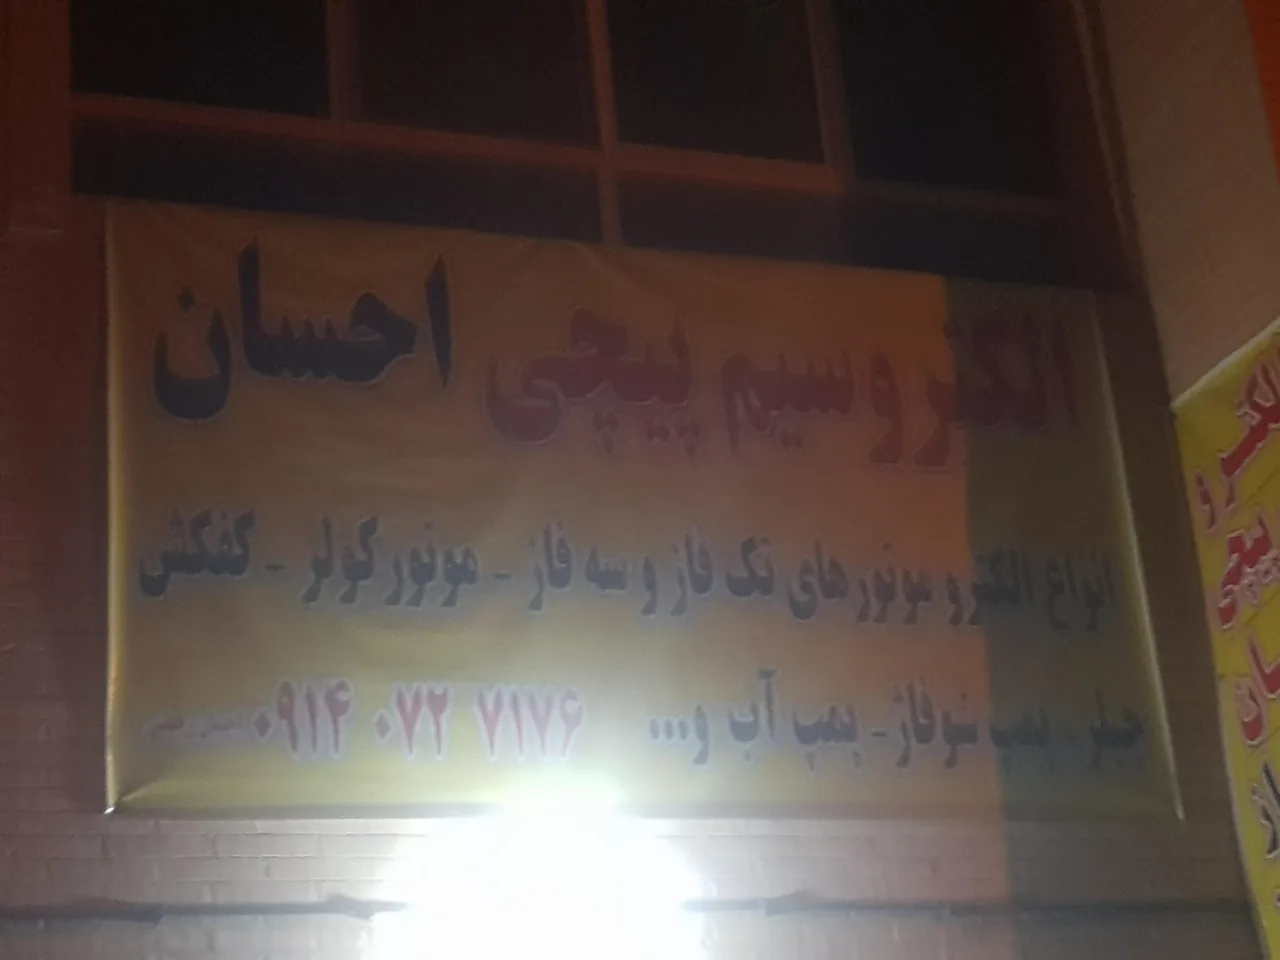 الکترو سیم پیچی احسان
انواع الکترو موتور های تک فاز و سه فاز - موتور کولر - کفکش
جیلر - پمپ شوفاژ - پمپ آب و... ۰۹۱۴ ۰۷۲ ۷۱۷۶
الکترو
پیچی